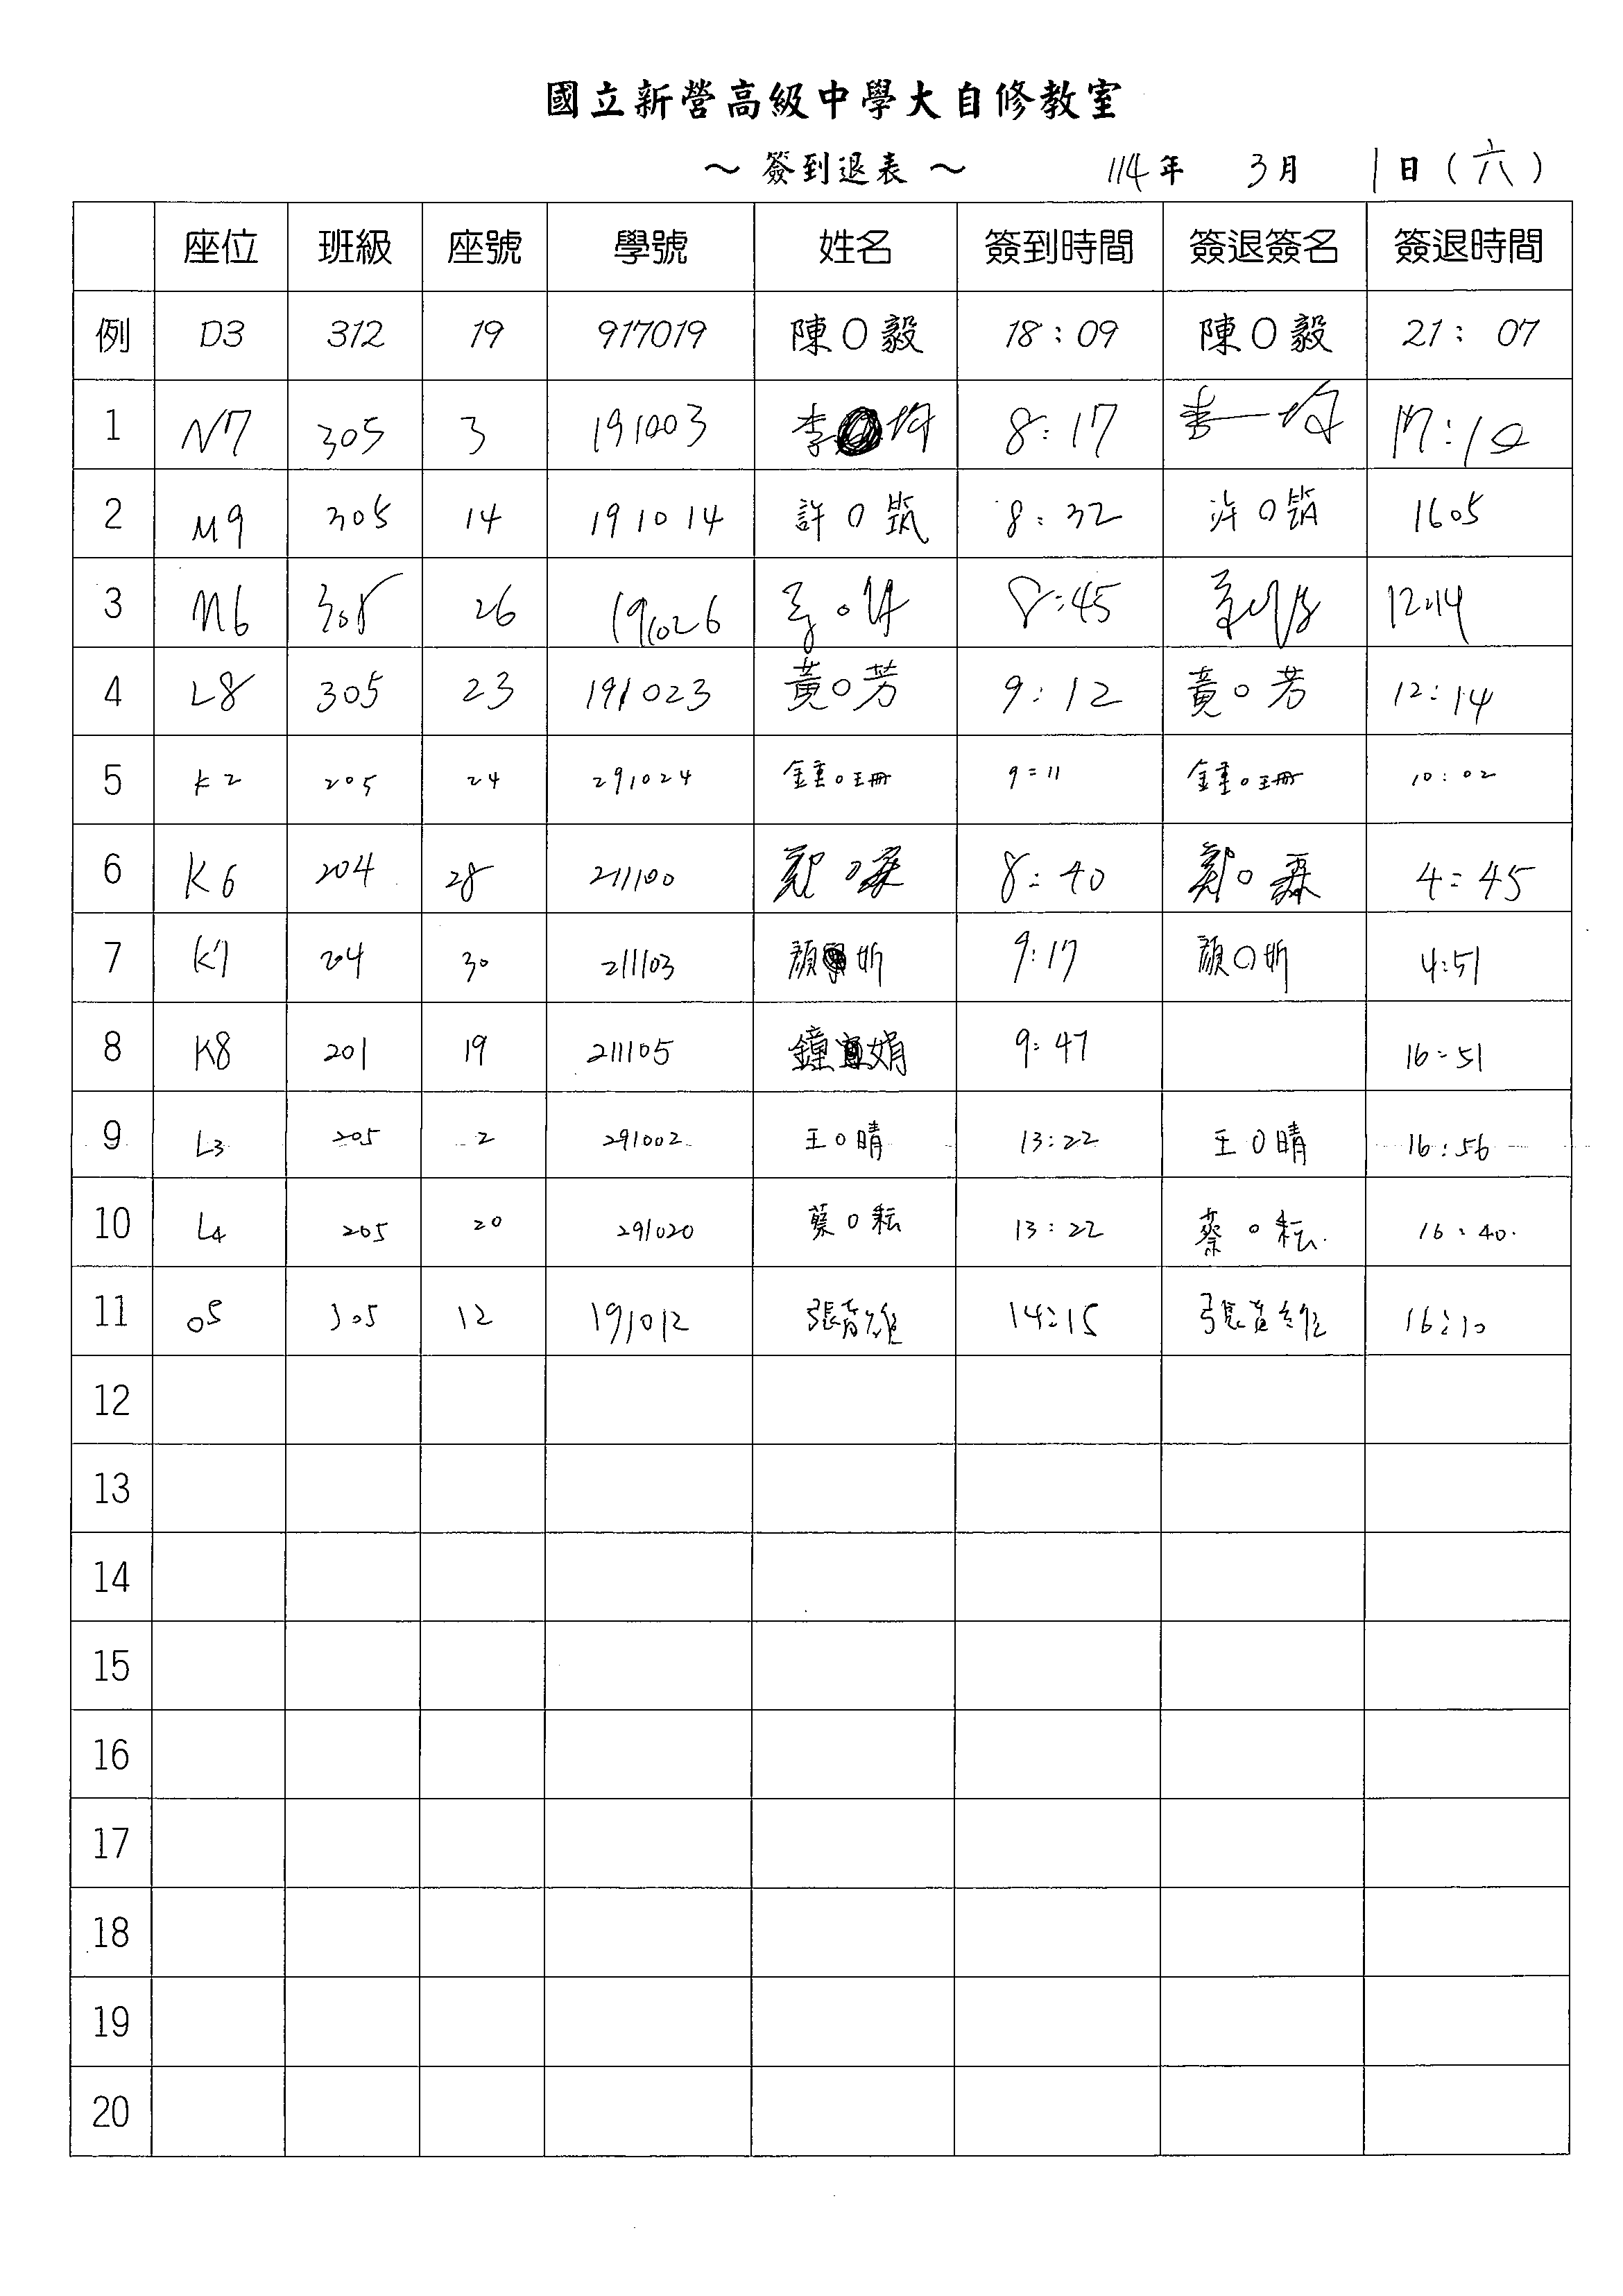 國立新營高級中學大自修教室
～ 簽到退表 ～ 114年 3月 1日(六)
座位 班級 座號 學號 姓名 簽到時間 簽退簽名 簽退時間
例 D3 312 19 917019 陳〇毅 18:09 陳〇毅 21:07
1 N7 305 3 191003 李 均 8:17 李一均 17:10
2 M9 305 14 191014 許〇筑 8:32 許〇筑 1605
3 M6 305 26 191026 8:45 12:14
4 L8 305 23 191023 黃〇芳 9:12 黃〇芳 12:14
5 K2 205 24 291024 鍾〇珊 9:11 鍾〇珊 10:02
6 K6 204 28 211100 鄭〇霖 8:40 鄭〇霖 4:45
7 K7 204 30 211103 顏 昕 9:17 顏〇昕 4:51
8 K8 201 19 211105 鐘 娟 9:47 16:51
9 L3 205 2 291002 王〇晴 13:22 王〇晴 16:56
10 L4 205 20 291020 蔡〇耘 13:22 蔡〇耘 16:40
11 O5 305 12 191012 張 維 14:15 張 維 16:10
12
13
14
15
16
17
18
19
20